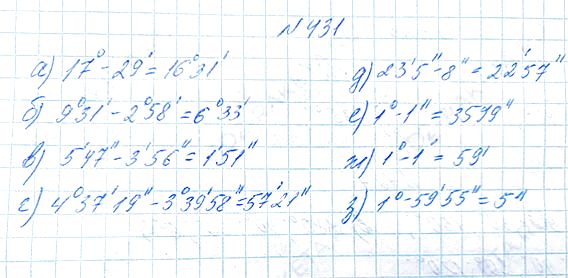 №431
а) 17° - 29' = 16°31'
б) 9°31' - 2°58' = 6°33'
в) 5'47" - 3'56" = 1'51"
г) 4°37'19" - 3°39'58" = 57'21"
д) 23'5" - 8" = 22'57"
е) 1° - 1" = 3599"
ж) 1° - 1' = 59'
з) 1° - 59'55" = 5"